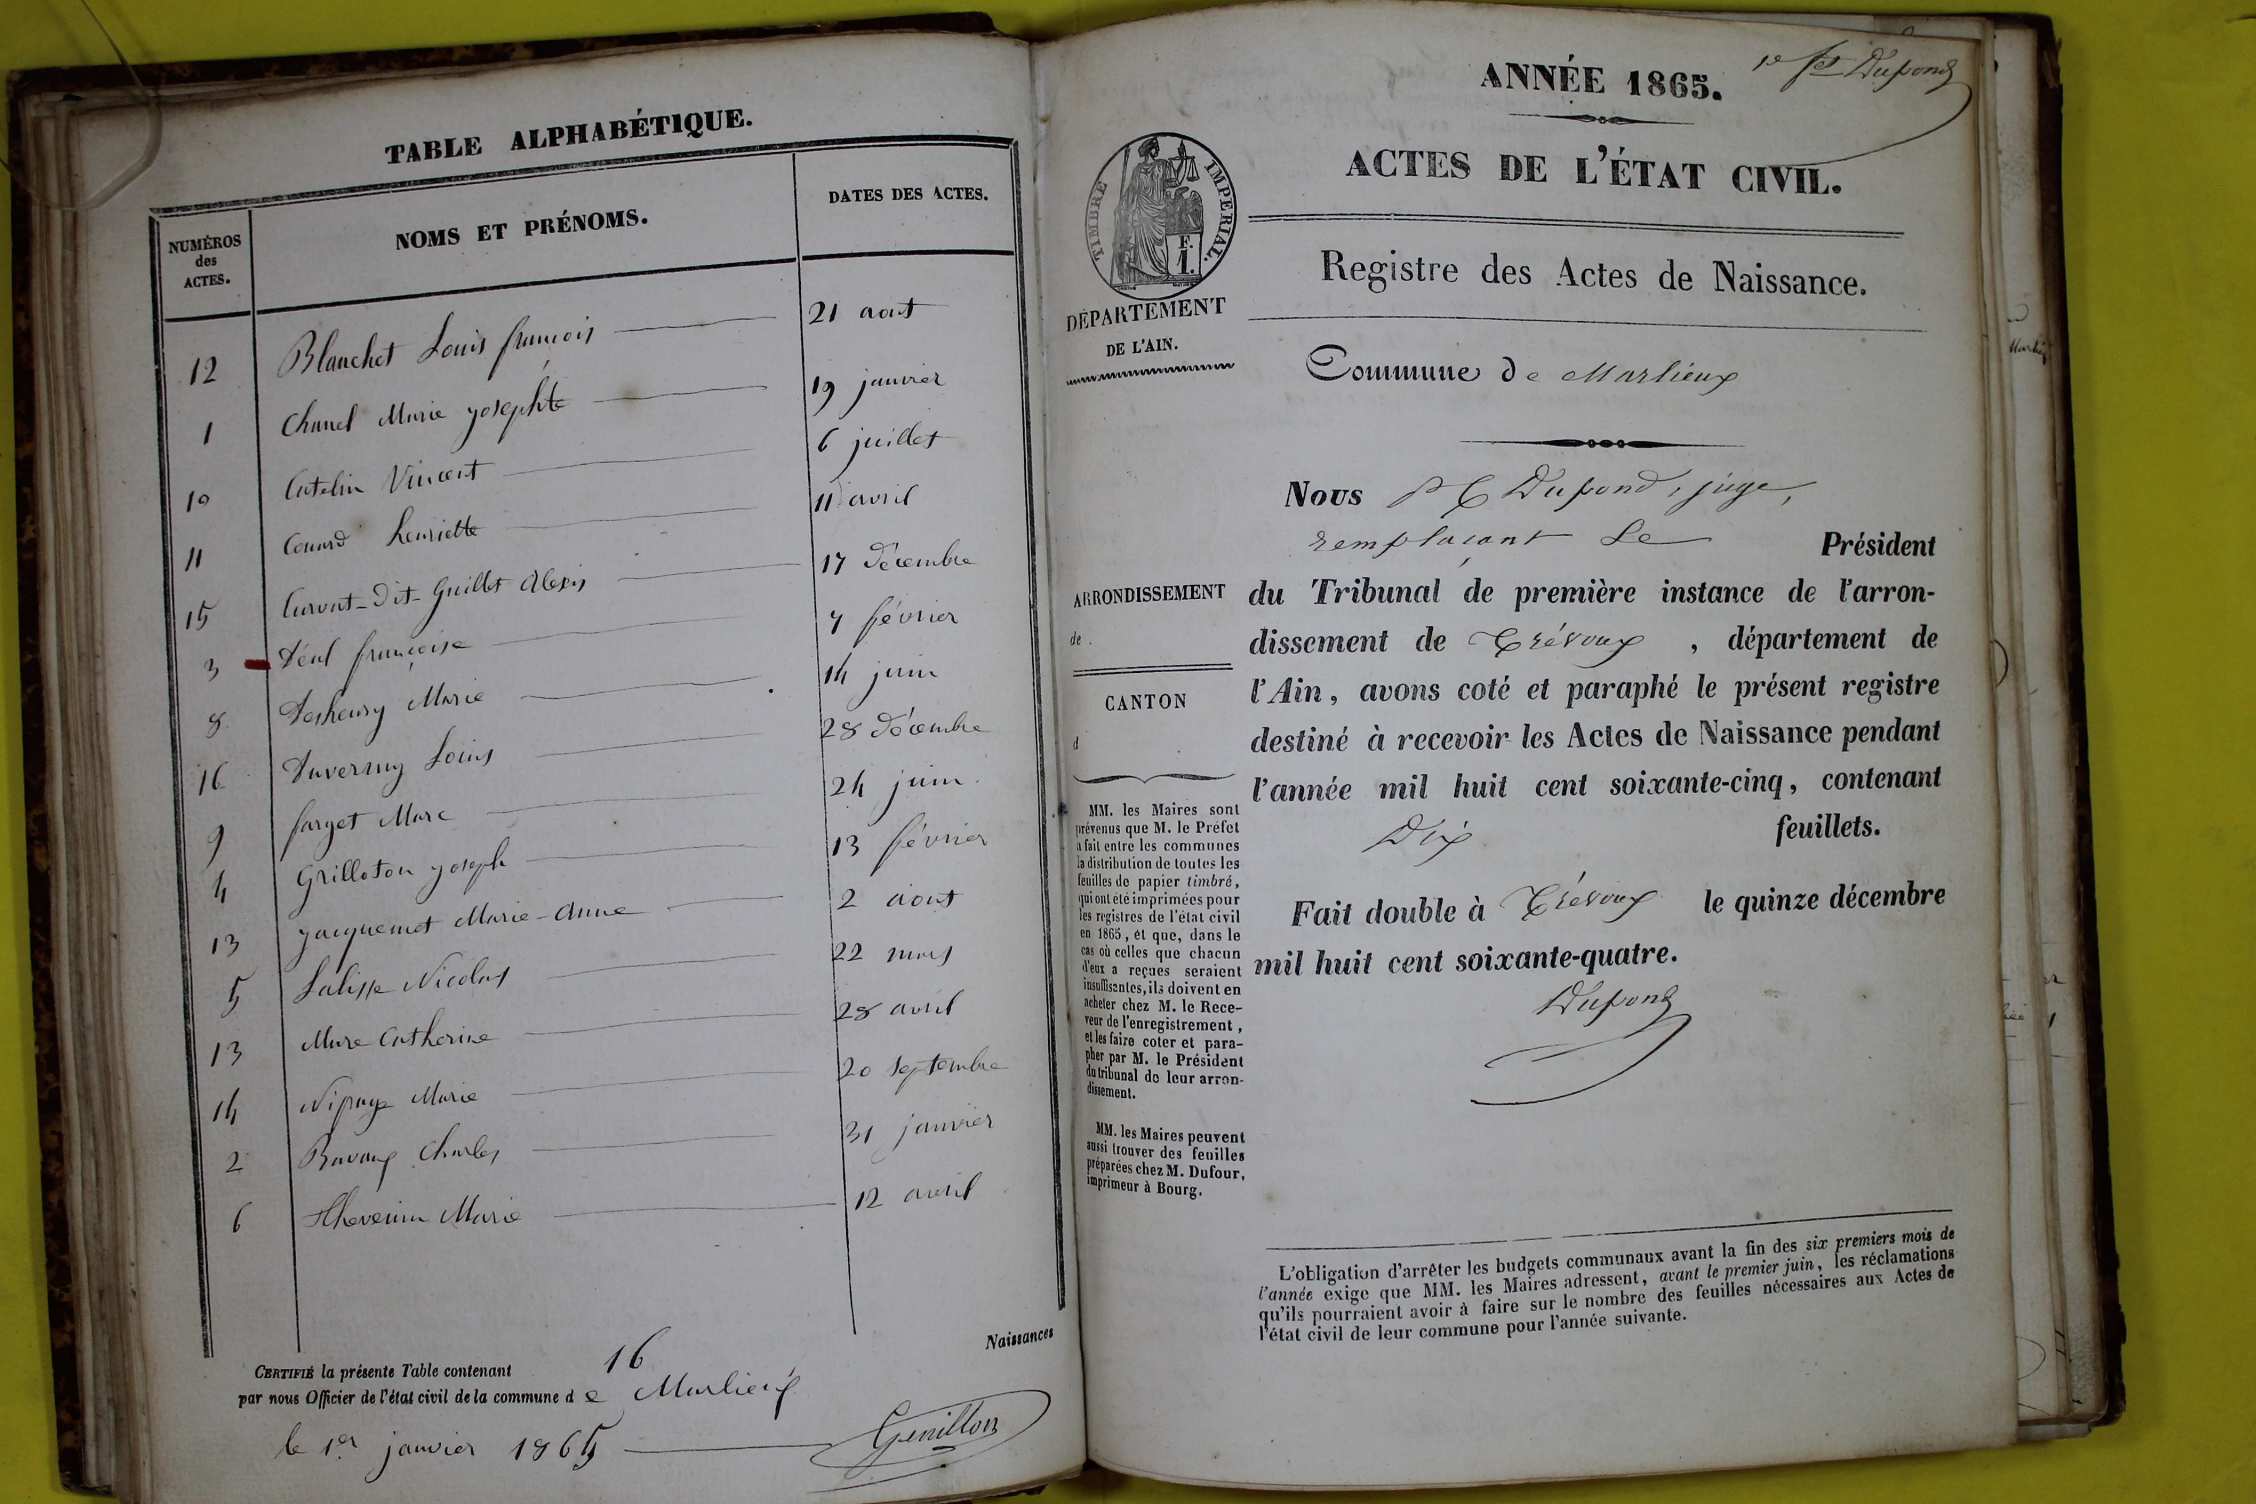 TABLE ALPHABÉTIQUE.
NUMÉROS des ACTES. NOMS ET PRÉNOMS. DATES DES ACTES.
12 Blanchet Louis françois 21 aout
1 Chanel Marie josephte 19 janvier
10 Catelin Vincent 6 juillet
11 Conard henriette 11 avril
15 Curvat-dit-Guillet Alexis 17 décembre
3 Déal françoise 7 février
8 Deshenry Marie 14 juin
16 Duvernay Louis 28 décembre
9 farget Marc 24 juin
4 Grilloton joseph 13 février
13 jacquemet Marie-Anne 2 aout
5 Lalisse Nicolas 22 mars
13 Mure Catherine 28 avril
14 Nipage Marie 20 septembre
2 Ravaux Charles 31 janvier
6 Thevenin Marie 12 avril
Naissances
CERTIFIÉ la présente Table contenant 16
par nous Officier de l'état civil de la commune de Marlieux
le 1er janvier 1865
Genillon
1e fet Dupond
ANNÉE 1865.
ACTES DE L'ÉTAT CIVIL.
TIMBRE IMPERIAL.
F.
1.
DÉPARTEMENT
DE L'AIN.
Registre des Actes de Naissance.
Commune de Marlieux
Nous Dupond, juge,
remplaçant Le Président
ARRONDISSEMENT
de
du Tribunal de première instance de l'arron-
dissement de Trévoux, département de
CANTON
d
l'Ain, avons coté et paraphé le présent registre
destiné à recevoir les Actes de Naissance pendant
l'année mil huit cent soixante-cinq, contenant
Dix feuillets.
Fait double à Trévoux le quinze décembre
mil huit cent soixante-quatre.
Dupond
MM. les Maires sont
prévenus que M. le Préfet
a fait entre les communes
la distribution de toutes les
feuilles de papier timbré,
qui ont été imprimées pour
les registres de l'état civil
en 1865, et que, dans le
cas où celles que chacun
d'eux a reçues seraient
insuffisantes, ils doivent en
acheter chez M. le Rece-
veur de l'enregistrement,
et les faire coter et para-
pher par M. le Président
du tribunal de leur arron-
dissement.
MM. les Maires peuvent
aussi trouver des feuilles
préparées chez M. Dufour,
imprimeur à Bourg.
L'obligation d'arrêter les budgets communaux avant la fin des six premiers mois de
l'année exige que MM. les Maires adressent, avant le premier juin, les réclamations
qu'ils pourraient avoir à faire sur le nombre des feuilles nécessaires aux Actes de
l'état civil de leur commune pour l'année suivante.